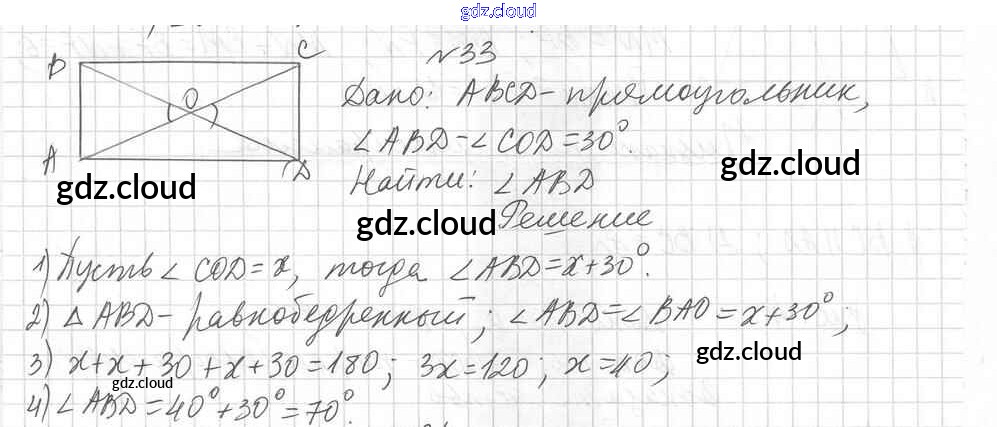 gdz.cloud
N33
B C
O
A D
Дано: ABCD - прямоугольник,
∠ABD - ∠COD = 30°.
Найти: ∠ABD
gdz.cloud
gdz.cloud
gdz.cloud
Решение
1) Пусть ∠COD = x, тогда ∠ABD = x+30°.
2) △ABD - равнобедренный; ∠ABD = ∠BAO = x+30°;
3) x+x+30+x+30=180; 3x=120; x=40;
gdz.cloud
gdz.cloud
4) ∠ABD = 40°+30° = 70°.